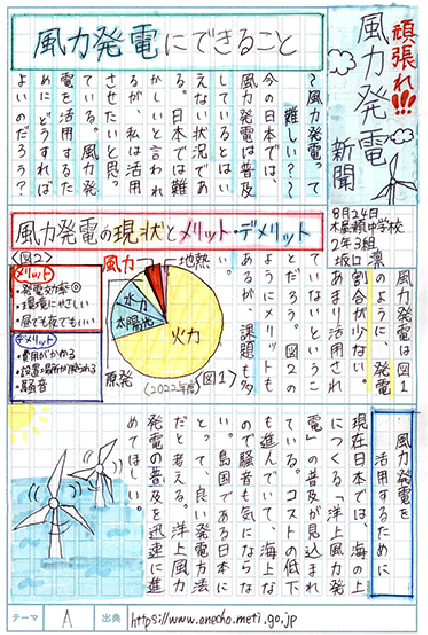 頑張れ!!!
風力発電
新聞
8月24日
木屋瀬中学校
2年3組
坂口 凛
風力発電にできること
〜風力発電って
難しい？〜
今の日本では、
風力発電は普及
しているとはい
えない状況であ
る。日本では難
かしいと言われ
るが、私は活用
させたいと思っ
ている。風力発
電を活用するた
めにどうすれば
よいのだろう？
風力発電の現状とメリット・デメリット
風力発電は図1
のように、発電
割合が少ない。
あまり活用され
ていないというこ
とだろう。図2の
ようにメリットも
あるが、課題も多
い。
〈図2〉
メリット
・発電効率◎
・環境にやさしい
・昼でも夜でもいい
デメリット
・費用がかかる
・設置場所が限られる
・騒音
風力
地熱
水力
太陽光
火力
原発
(2022年度)
〈図1〉
風力発電を
活用するために
現在日本では、海の上
につくる「洋上風力発
電」の普及が見込まれ
ている。コストの低下
も進んでいて、海上な
ので騒音も気にならな
い。島国である日本に
とって、良い発電方法
だと考える。洋上風力
発電の普及を迅速に進
めてほしい。
テーマ
A
出典
https://www.enecho.meti.go.jp